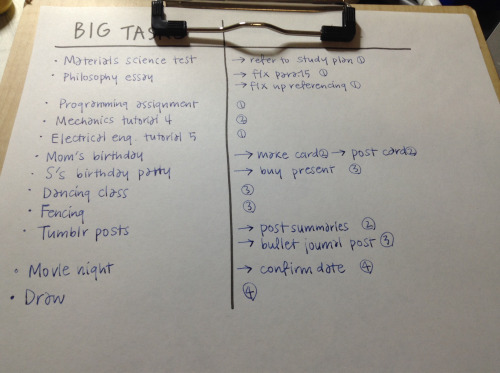 BIG TAS
• Materials science test → refer to study plan ①
• Philosophy essay → fix para.15 ①
→ fix up referencing ①
• Programming assignment ①
• Mechanics tutorial 4 ②
• Electrical eng. tutorial 5 ①
• Mom's birthday → make card② → post card②
• S's birthday party → buy present ③
• Dancing class ③
• Fencing ③
• Tumblr posts → post summaries ②
→ bullet journal post ③
• Movie night → confirm date ④
• Draw ④